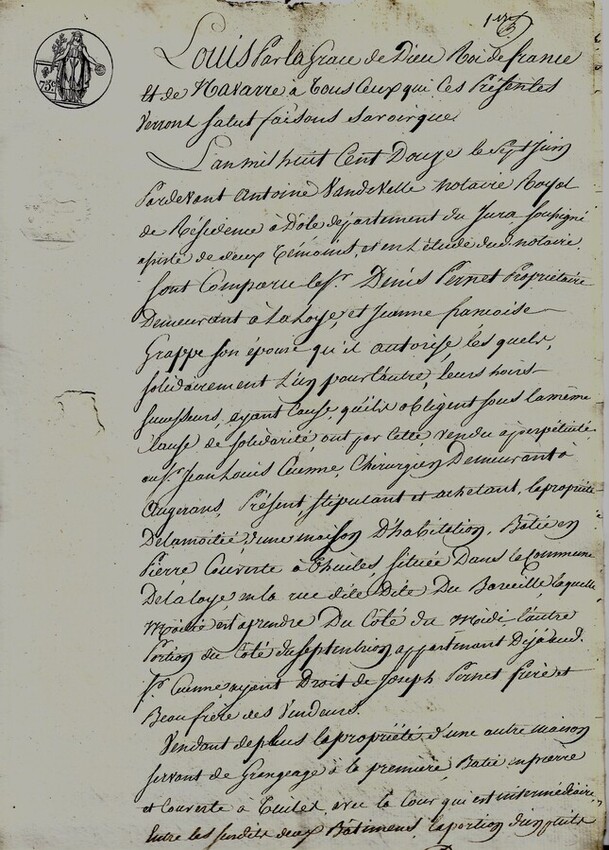 1re
75c
Louis Par la Grace de Dieu Roi de france
et de Navarre a tous ceux qui ces Présentes
Verront salut faisons savoir que
L'an mil huit Cent Douze le sept Juin
Pardevant Antoine Vandevelle notaire Royal
de Résidence à Dole département du Jura soussigné
assisté de deux témoins, et en l'étude dud. notaire
sont Comparu le Sr. Denis Pernet Propriétaire
Demeurant à La Loye, et Jeanne francoise
Grappe son épouse qu'il autorise, les quels,
solidairement l'un pour l'autre, leurs hoirs
successeurs, ayant Cause, qu'ils obligent sous la même
Clause de solidarité, ont par cette, vendu a perpétuité
au Sr. Jean Louis Cuenne, Chirurgien Demeurant à
Augerans, Présent, stipulant et achetant, la propriété
De la moitié, d'une maison D'habitation, Batie en
Pierre Couverte à Thuiles, située Dans la Commune
De La Loye, en la rue dite Du Bareille, laquelle
Moitié est a prendre Du Côté du Midi l'autre
Portion du Coté du septembrion appartenant Déja aud.
Sr. Cuenne ayant Droit de Joseph Pernet frère et
Beaufrère des Vendeurs.
Vendant de plus la propriété, d'une autre maison
servant de Grangeage à la première, Batie en pierre
et Couverte à Tuiles, avec la Cour qui est intermédiaire
Entre les susdits deux Bâtimens, la portion d'un puits